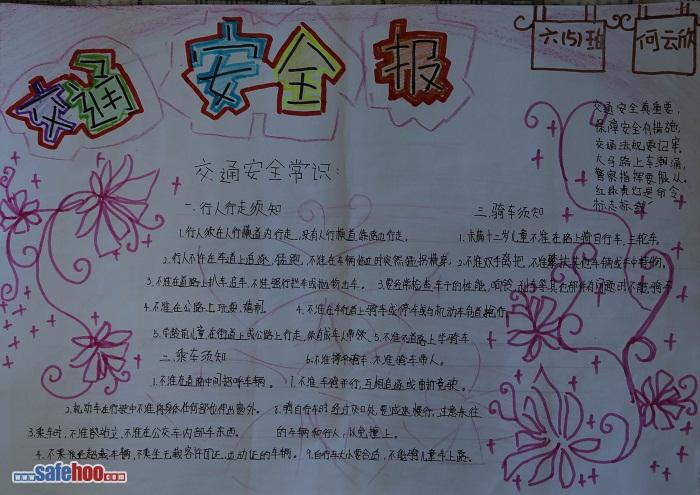 交通安全报
六(5)班
何云欣
交通安全真重要,
保障安全有措施,
交通法规要记牢,
大马路上车潮涌,
警察指挥要服从,
红绿黄灯是命令,
交通安全常识:
一.行人行走须知
1.行人须在人行横道内行走,没有人行横道靠路边行走。
2.行人不许在车道上追逐,猛跑,不准在车辆临近时突然猛拐横穿;
3.不准在道路上扒车、追车,不准强行拦车或抛物击车。
4.不准在公路上玩耍、嬉闹
5.学龄前儿童在街道上或公路上行走,须有成年人带领
二、乘车须知
1.不准在道路中间招呼车辆。
2.机动车在行驶中不准将身体任何部位伸出窗外。
3.乘车时,不准站立,不准在公交车内
三.骑车须知
1.未满十二岁儿童不准在路上骑自行车,三轮车。
2.不准双手离把,不准攀扶其他车辆或手中载物。
3.要经常检查车子的性能,响铃,刹车等其他部件有问题时不能骑车
4.不准在人行道上骑车
5.不准在道路上学骑车
6.不准骑车带人。
7.不准骑车并行,互相追逐或曲折竞驶。
8.骑自行车时经过交叉口处,要减速慢行,注意来往
的车辆和行人,以免撞上。
9.自行车大小要合适,不能骑儿童车上路。
www.safehoo.com